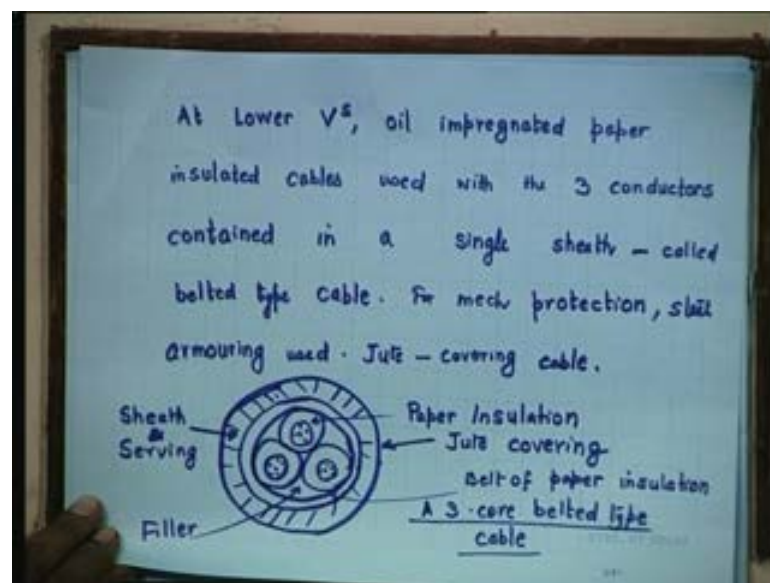 At Lower Vˢ, oil impregnated paper
insulated cables used with the 3 conductors
contained in a single sheath - called
belted type cable. For mech protection, steel
armouring used. Jute - covering cable.
Sheath & Serving
Paper Insulation
Jute covering
Belt of paper insulation
Filler
A 3-core belted type
cable